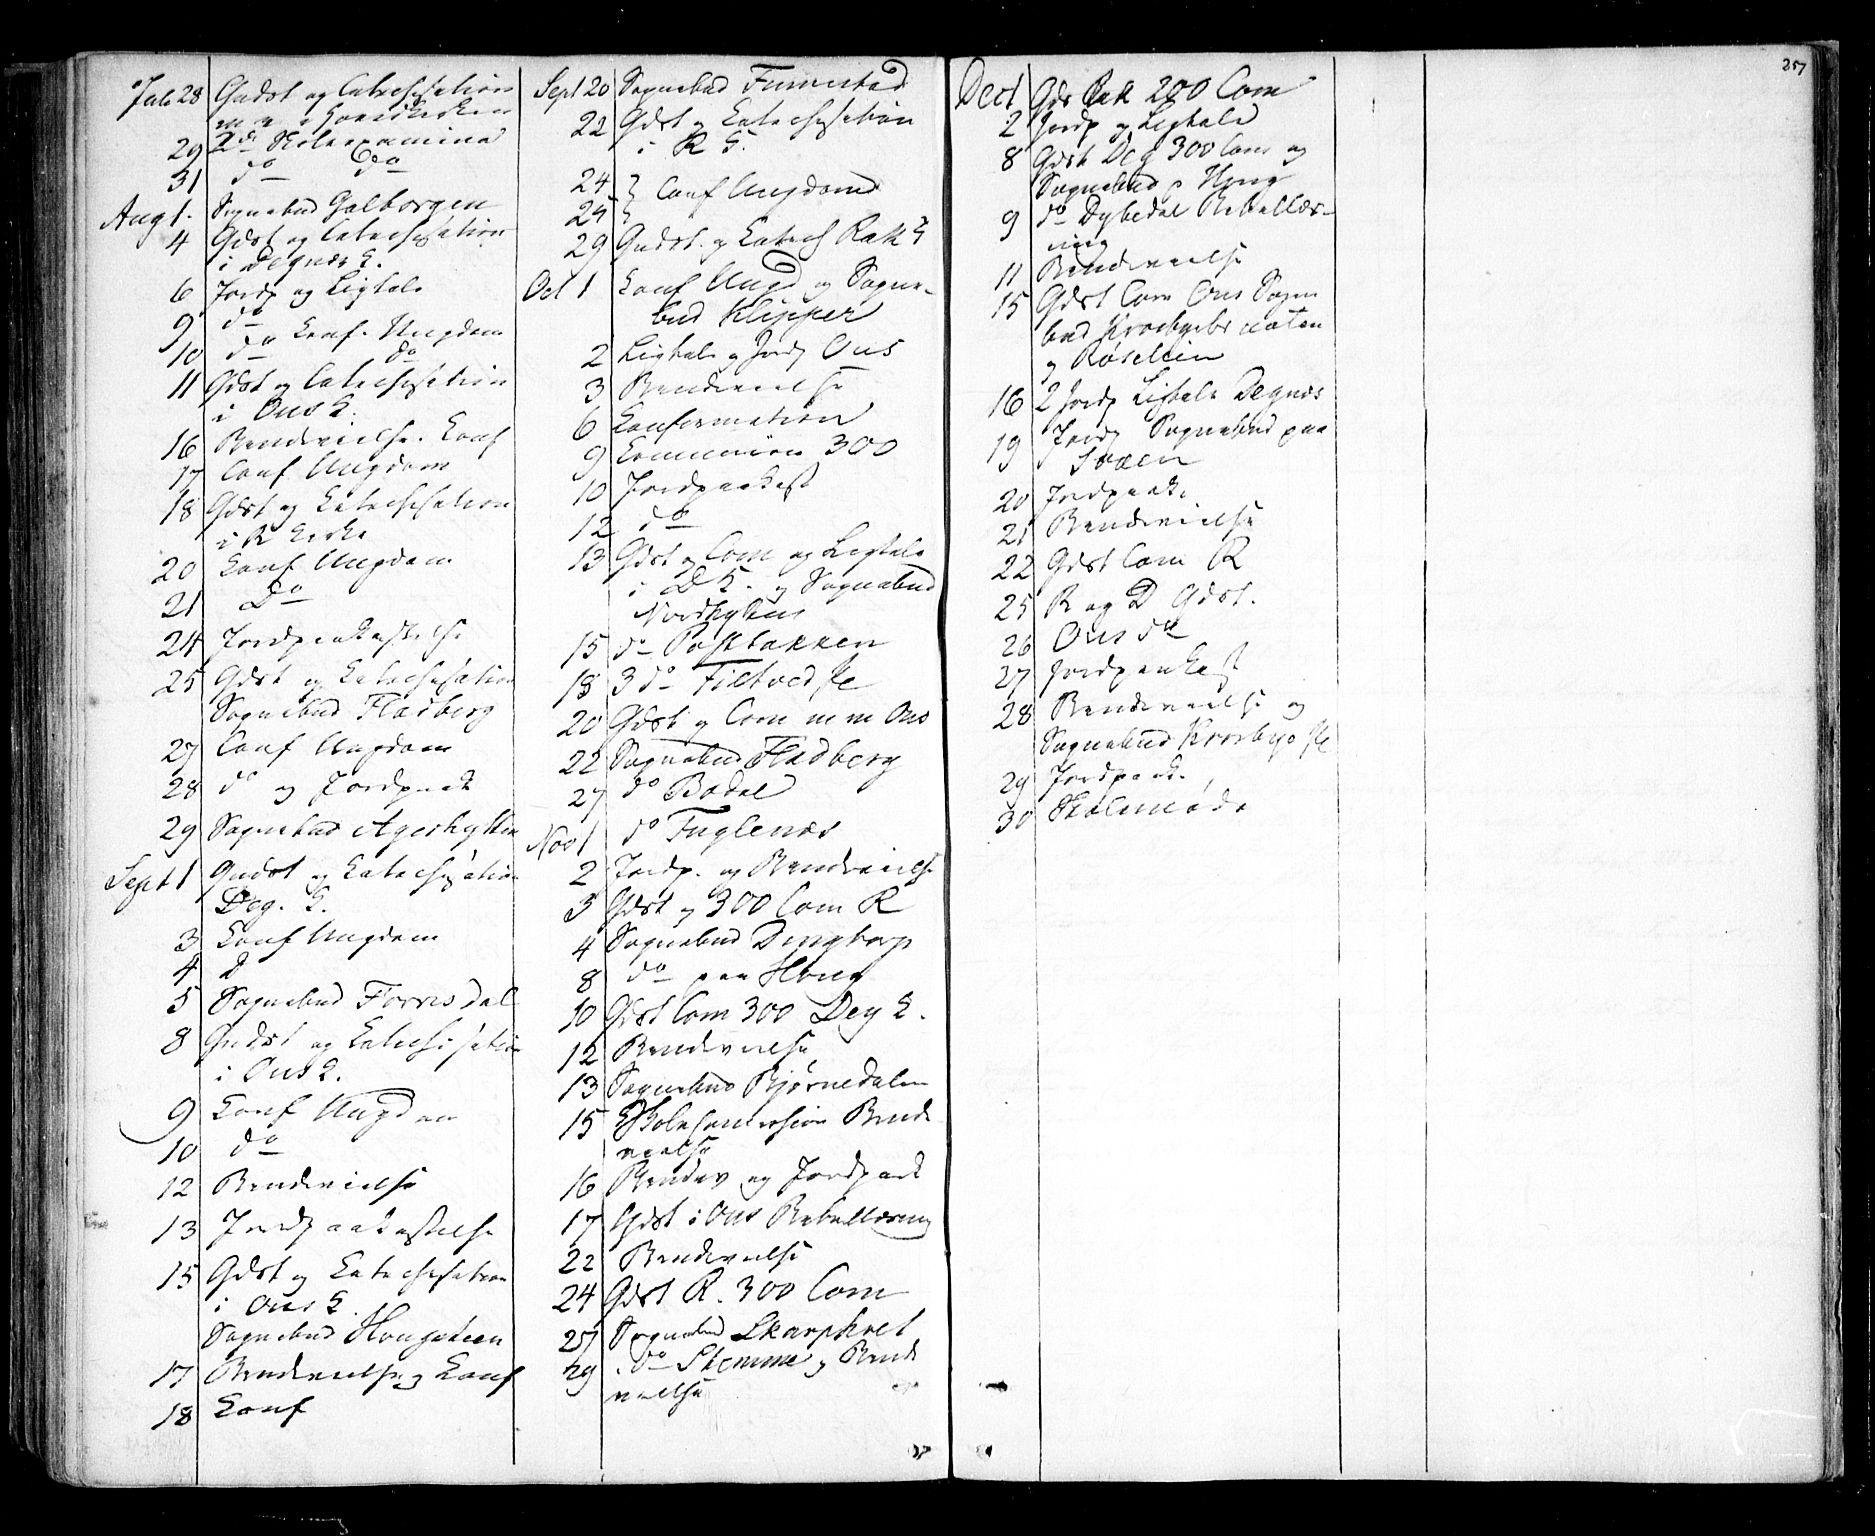 Juli 28 Gudst og Catechisation
m. v. i Hovedkirken
29 2de Skoleexamina
31 do do
Aug 1. Sognebud Galborgen
4 Gdst og Catechisation
i Degnæs K.
6 Jordp og Ligtale
9 do
10 do Conf. Ungdom
do
11 Gdst og Catechisation
i Ons K.
16 Brudevielse. Conf
17 Conf Ungdom
18 Gdst og Catechisation
i R Kirke
20 Conf Ungdom
21 Do
24 Jordpaakastelse
25 Gdst og Catechisation
Sognebud Fladberg
27 Conf Ungdom
28 do og Jordpaak
29 Sognebud Agerhytten
Sept 1 Gudst og Catechisation
Deg. K.
3 Conf Ungdom
4 D
5 Sognebud Forresdal
8 Gudst og Catechisation
i Ons K.
9 Conf Ungdom
10 do
12 Brudevielse
13 Jordpaakastelse
15 Gdst og Catechisation
i Ons K.
Sognebud Hougsteen
17 Brudevielse og Conf
18 Conf
Sept 20 Sognebud Finnestad
22 Gdst og Catechisation
i R K.
24 } Conf Ungdom
25 }
29 Gudst. og Catech Rak K
Oct 1 Conf Ungd og Sogne-
bud Klipper
2 Ligtale og Jordp Ons
3 Brudevielse
6 Confirmation
9 Communion 300
10 Jordpaakast
12 do
13 Gdst og Com og Ligtale
i D K. og Sognebud
Nordhytten
15 do Passtakken
18 3 do Filtved
20 Gdst og Com m m Ons
22 Sognebud Fladberg
27 do Bodal
Nov 1 do Fuglenæs
2 Jordp. og Brudevielse
3 Gdst og 300 Com R
4 Sognebud Dingtorp
8 do paa Houg
10 Gdst Com 300 Deg K.
12 Brudevielse
13 Sognebud Bjørnedalen
15 Skolecommission Brude
vielse
16 Brudev og Jordpaak
17 Gdst i Ons Bibellæsning
22 Brudevielse
24 Gdst R. 300 Com
27 Sognebud Skarphol
29 do Stemme og Brude
vielse
257
Dec 1 Gds Rak 200 Com
2 Jordp og Ligtale
8 Gdst Deg 300 Com og
Sognebud p Houg
9 do Dybedal Bibellæs-
ning
11 Brudevielse
15 Gdst Com Ons Sogne
bud
og Røsetein
16 2 Jordp Ligtale Degnæs
19 Jordp Sognebud paa
20 Jordpaak.
21 Brudevielse
22 Gdst Com R
25 R og D Gdst.
26 Ons do
27 Jordpaakast
28 Brudevielse og
Sognebud
29 Jordpaak.
30 Skolemøde